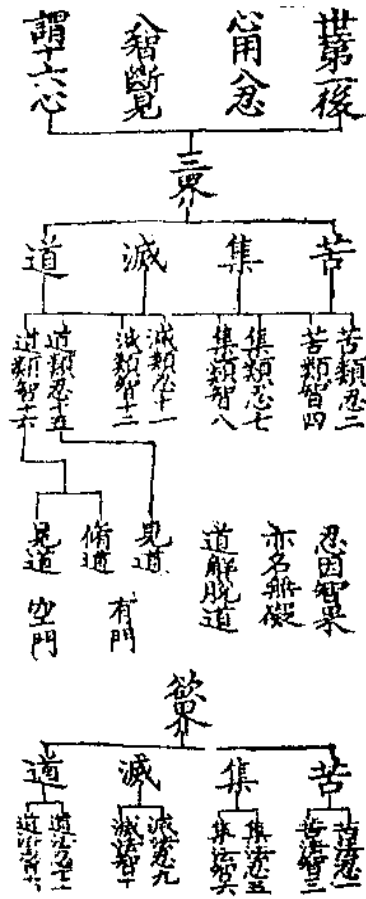 世第一後
心用八忍
八智斷見
謂十六心
三界
苦
集
滅
道
苦類忍二
苦類智四
集類忍七
集類智八
滅類忍十一
滅類智十二
道類忍十五
道類智十六
忍因智果
亦名無礙
道解脫道
見道
脩道
見道
有門
空門
慾界
苦
集
滅
道
苦法忍一
苦法智三
集法忍五
集法智六
滅法忍九
滅法智十
道法忍十
道法智十